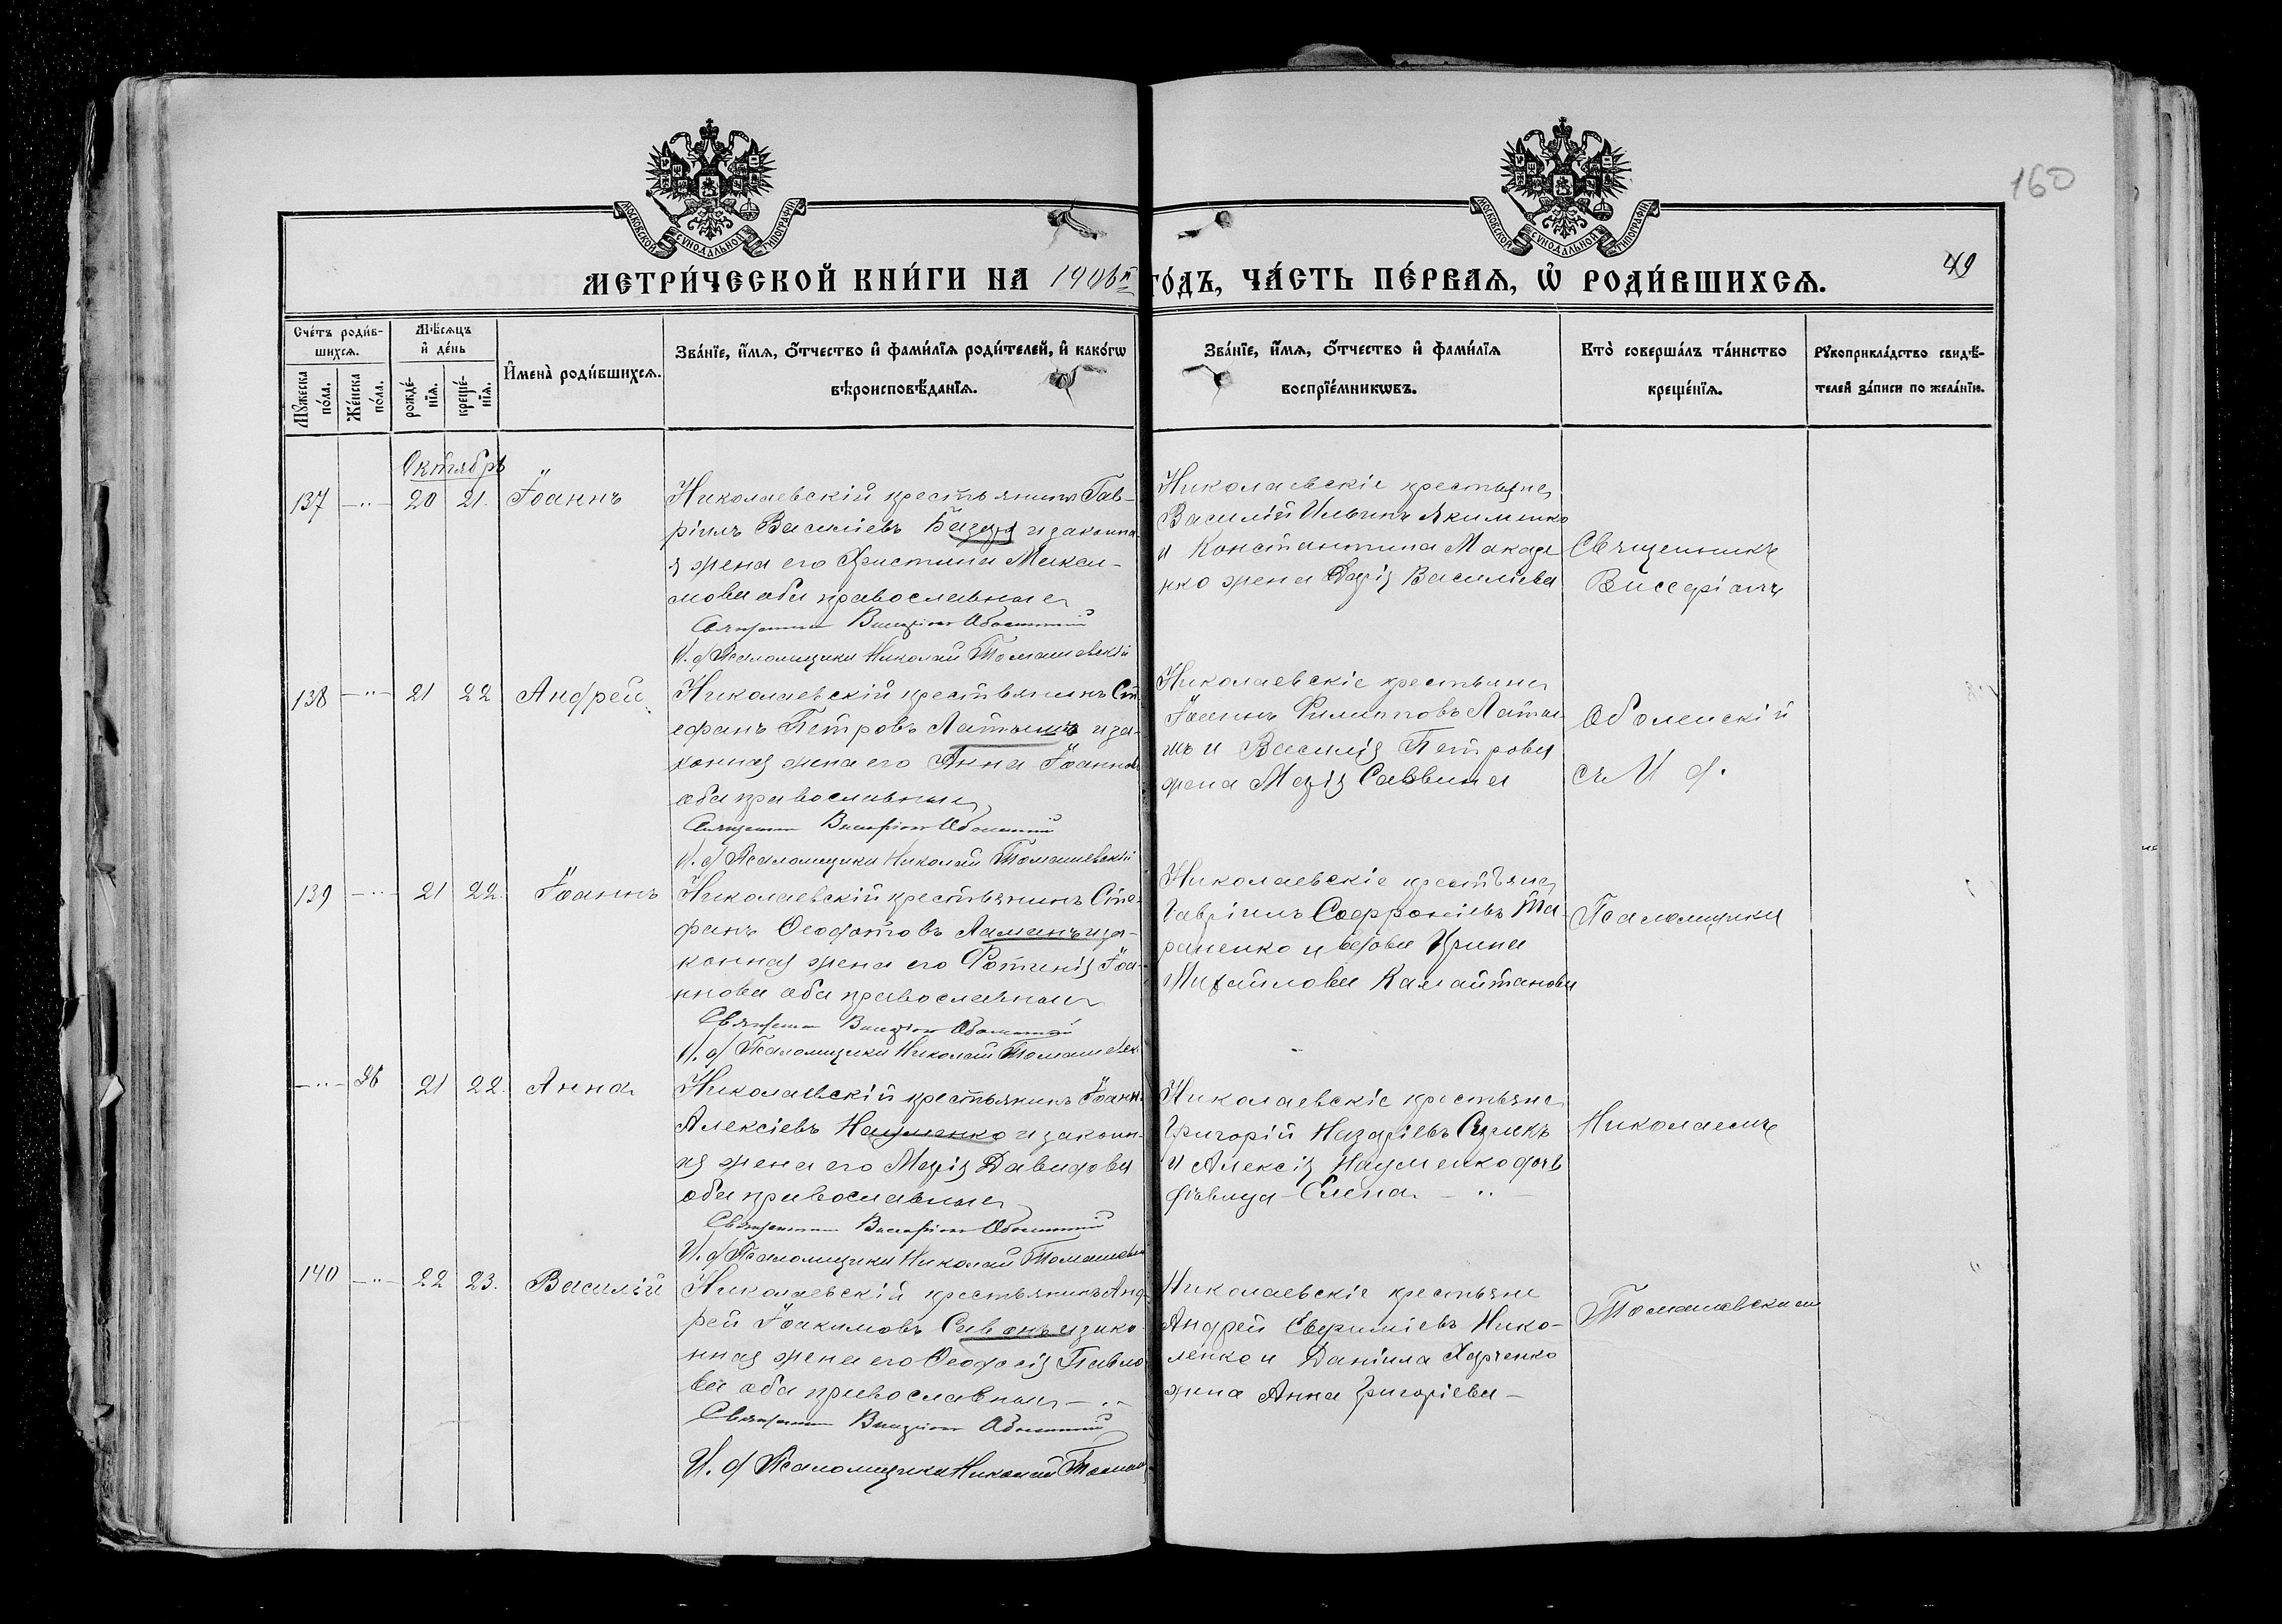 160
МОСКОВСКОЙ СѴНОДАЛЬНОЙ ТИПОГРАФІИ
МОСКОВСКОЙ СѴНОДАЛЬНОЙ ТИПОГРАФІИ
49
МЕТРИ́ЧЕСКОЙ КНИ́ГИ НА 1906й ГО́ДЪ, ЧА́СТЬ ПЕ́РВАѦ, Ѡ҆ РОДИ́ВШИХСѦ.
Сче́тъ роди́в-
шихсѧ.
Мꙋжеска по́ла.
Же́нска по́ла.
Мѣ́сѧцъ и҆ де́нь
рожде́-
нїѧ.
креще́-
нїѧ.
И҆мена̀ роди́вшихсѧ.
Зва́нїе, и҆́мѧ, ѻ҆́тчество и҆ фами́лїѧ роди́телей, и҆ како́гѡ
вѣроисповѣ́данїѧ.
Зва́нїе, и҆́мѧ, ѻ҆́тчество и҆ фами́лїѧ
воспрїе́мникѡвъ.
Кто̀ соверша́лъ та́инство
креще́нїѧ.
Рꙋкоприкла́дство свидѣ́-
телей за́писи по жела́нїю.
Октябрь
137 —"— 20 21. Іоаннъ
Николаевскій крестьянинъ Гав-
ріилъ Василіевъ Базура и законна
я жена его Христина Макси-
мова оба православные
Священникъ Виссаріонъ Оболенскій
И. д Псаломщика Николай Томашевскій
Николаевскіе крестьяне
Василій Ильинъ Якименко
и Константина Макаре
нко жена Дарія Василіева
Священникъ
Виссаріонъ
138 —"— 21 22 Андрей
Николаевскій крестьянинъ Ст
ефанъ Петровъ Латышъ и за-
конная жена его Анна Іоаннова
оба православные
Священникъ Виссаріонъ Оболенскій
И. д Псаломщика Николай Томашевскій
Николаевскіе крестьяне
Іоаннъ Филипповъ Латы-
шъ и Василія Петрова
жена Марія Саввина
Оболенскій
съ И д.
139 —"— 21 22. Іоаннъ
Николаевскій крестьянинъ Сте-
фанъ Ѳеодотовъ Ламанъ и за-
конная жена его Фотинія Іоа-
ннова оба православные
Священникъ Виссаріонъ Оболенскій
И. д Псаломщика Николай Томашевск
Николаевскіе крестьяне
Гавріилъ Софроніевъ Та-
раненко и вдова Ирина
Михайлова Калайтанова
Псаломщика
—"— 36 21 22. Анна
Николаевскій крестьянинъ Іоанн
Алексіевъ Науменко и законн-
ая жена его Марія Давидова
оба православные
Священникъ Виссаріонъ Оболенскій
И. д Псаломщика Николай Томашевск
Николаевскіе крестьяне
Григорій Назаріевъ
и Алексія Науменко дочь
дѣвица Елена — " —
Николаемъ
140 —"— 22 23. Василій
Николаевскій крестьянинъ Анд-
рей Іоакимовъ Сивонъ и зако-
нная жена его Ѳеодосія Павло
ва оба православные — " —
Священникъ Виссаріонъ Оболенскій
И. д Псаломщика Николай Томаш
Николаевскіе крестьяне
Андрей Евфиміевъ Нико-
ленко и Даніила Харченко
жена Анна Григоріева —
Томашевскимъ